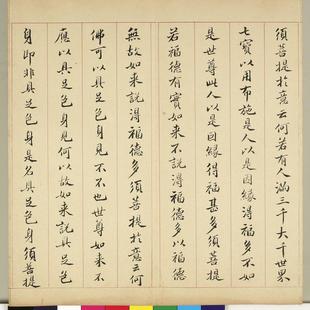 須菩提於意云何若有人滿三千大千世界
七寳以用布施是人以是因緣得福多不如
是世尊此人以是因緣得福甚多須菩提
若福德有實如来不説得福德多以福德
無故如来説得福德多須菩提於意云何
佛可以具足色身見不不也世尊如来不
應以具足色身見何以故如来説具足色
身即非具足色身是名具足色身須菩提